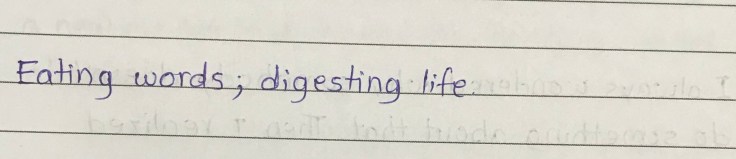 Eating words; digesting life.